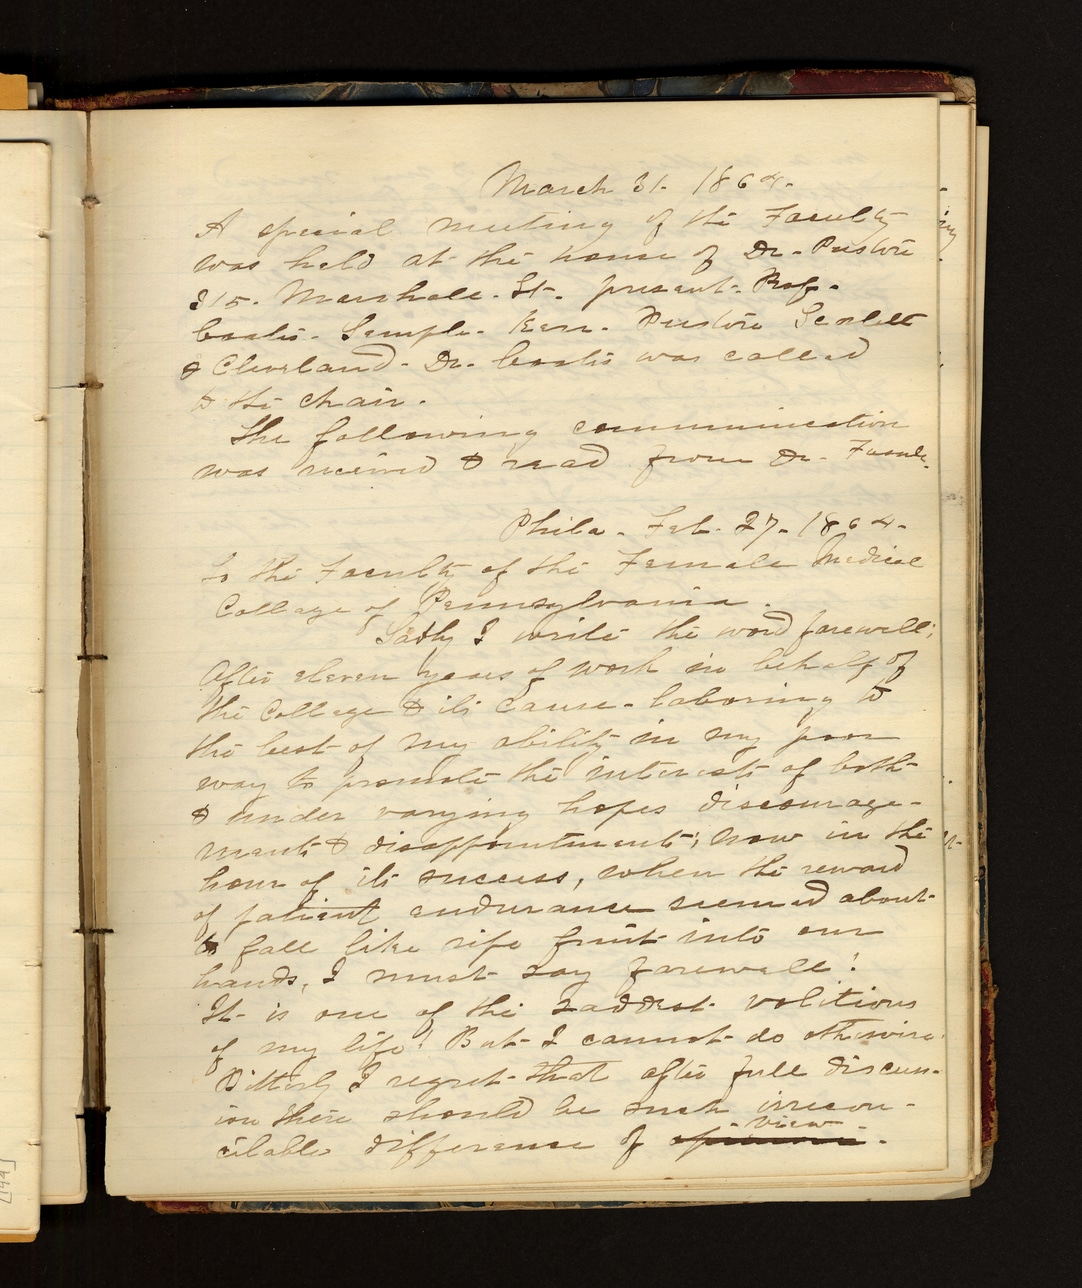 March 31. 1864.
A special meeting of the Faculty
was held at the house of Dr. Preston
315. Marshall. St. present. Prof.
Coates. Semple. Kerr. Preston Scarlett
& Cleveland. Dr. Coates was called
to the chair.
The following communication
was received & read from Dr.
Phila. Feb. 27. 1864.
To the Faculty of the Female Medical
College of Pennsylvania.
Sadly I write the word farewell;
After eleven years of work in behalf of
the College & its cause. laboring to
the best of my ability in my poor
way to promote the interests of both
& under varying hopes discourage-
ments & disappointments; now in the
hour of its success, when the reward
of patient endurance seemed about
to fall like ripe fruit into our
hands, I must say farewell!
It is one of the saddest volitions
of my life! But I cannot do otherwise.
Bitterly I regret that after full discuss-
ion there should be such irrecon-
cilable difference of opinion view.